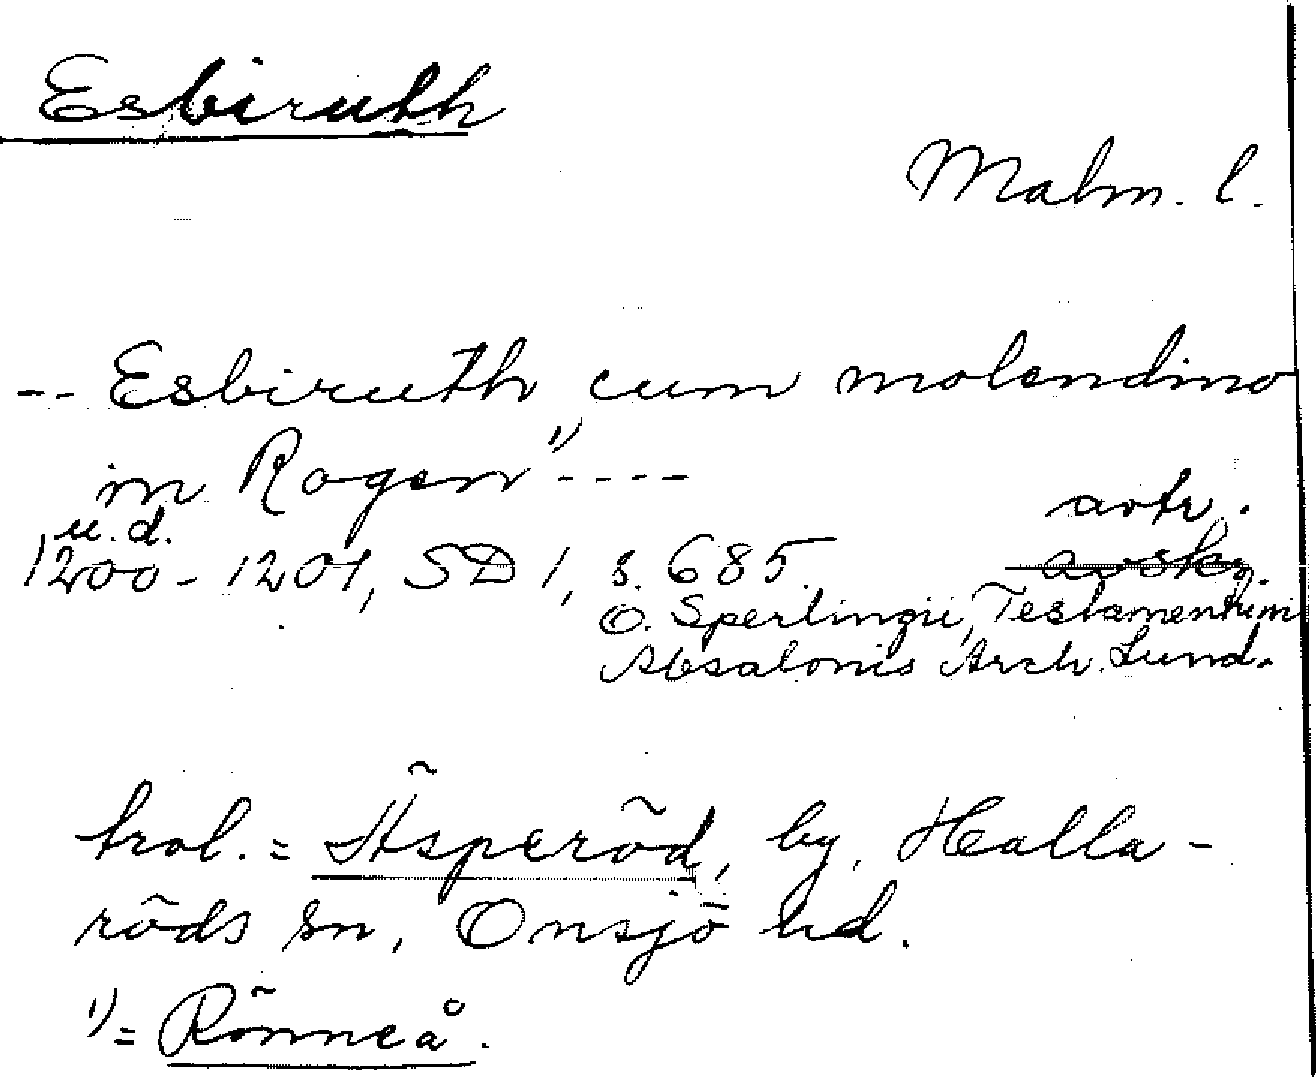 Esbiruth
Malm. l.
-- Esbiruth cum molendino
in Rogen 1) ----
u.d.
avtr.
1200-1201, SD 1, s. 685. avskr.
O. Sperlingii, Testamentum
Absalonis Arch. Lund.
trol. = Äsperöd, by, Halla-
röds sn, Onsjö hd.
1) = Rönneå.